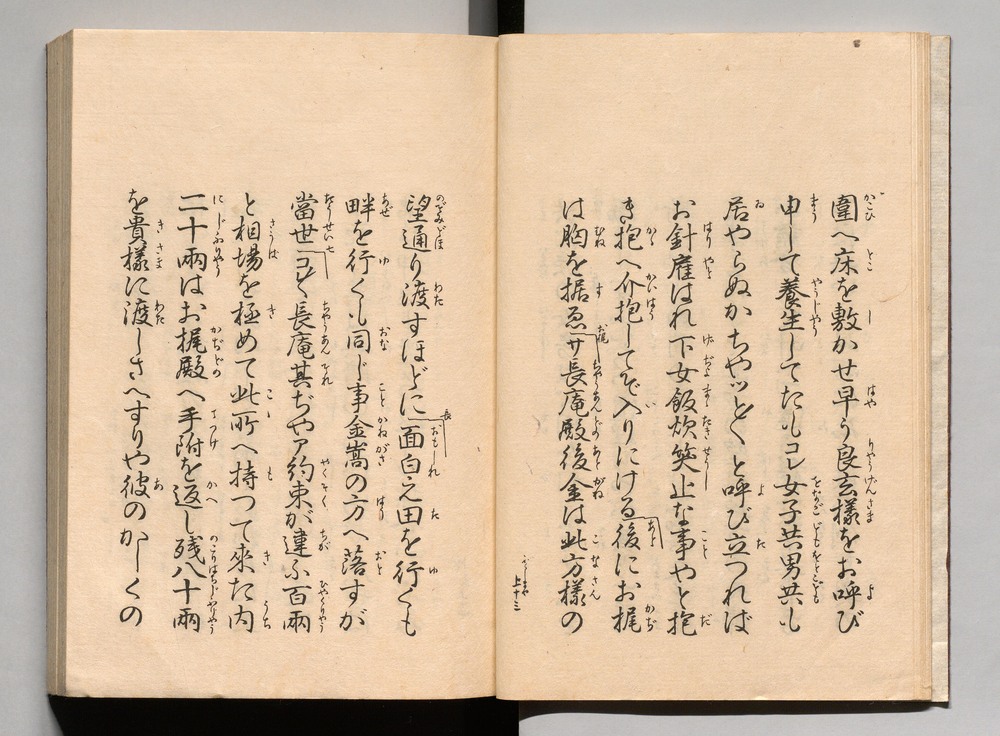 圍へ床を敷かせ早う良玄様をお呼び
申して養生してたもコレ女子共男共も
居やらぬかちやツとくと呼び立つれば
お針雇はれ下女飯炊笑止な事やと抱
き抱へ介抱してぞ入りにける後にお梶
は胸を据ゑサ長庵殿後金は此方様の
上十三
望通り渡すほどに面白え田を行くも
畔を行くも同じ事金嵩の方へ落すが
當世コレく長庵其ぢやア約束が違ふ百兩
と相場を極めて此所へ持つて來た内
二十兩はお梶殿へ手附を返し残八十兩
を貴様に渡しさへすりや彼のかしくの